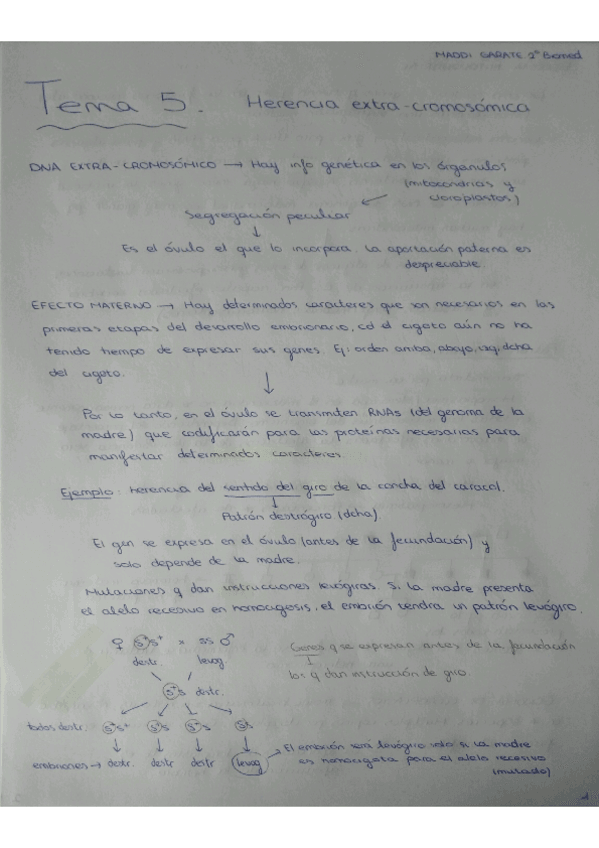 MADDI GARATE 2º Biomed
Tema 5. Herencia extra-cromosómica
DNA EXTRA-CROMOSÓMICO → Hay info genética en los órganulos
(mitocondrias y
cloroplastos)
Segregación peculiar
↓
Es el óvulo el que lo incorpora. La aportación paterna es
despreciable.
EFECTO MATERNO → Hay determinados caracteres que son necesarios en las
primeras etapas del desarrollo embrionario, cd el cigoto aún no ha
tenido tiempo de expresar sus genes. Ej: orden arriba, abajo, izq, dcha
del cigoto.
↓
Por lo tanto, en el óvulo se transmiten RNAs (del genoma de la
madre) que codificarán para las proteínas necesarias para
manifestar determinados caracteres.
Ejemplo: herencia del sentido del giro de la concha del caracol.
Patrón dextrógiro (dcha).
El gen se expresa en el óvulo (antes de la fecundación) y
solo depende de la madre.
Mutaciones q dan instrucciones levógiras. Si la madre presenta
el alelo recesivo en homocigosis, el embrión tendrá un patrón levógiro.
♀ s⁺s⁺ × ss ♂
destr. levog.
Genes q se expresan antes de la fecundación
los q dan instrucción de giro.
s⁺s destr.
todos destr. s⁺s⁺ s⁺s s⁺s ss
embriones → destr. destr destr levog
El embrión será levógiro solo si la madre
es homocigota para el alelo recesivo
(mutado)
1